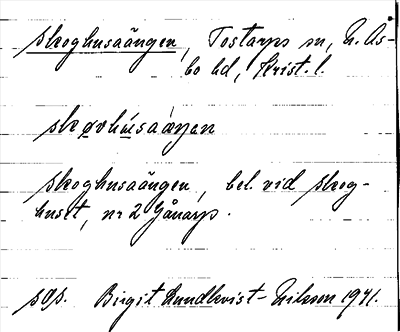 Skoghusaängen, Tostarps sn, N. Ås-
bo hd, Krist. l.
skǫvhúsaàŋən
Skoghusaängen, bel. vid Skog-
huset, nr 2 Gånarp.
sOp. Birgit Lundkvist-Nilsson 1941.